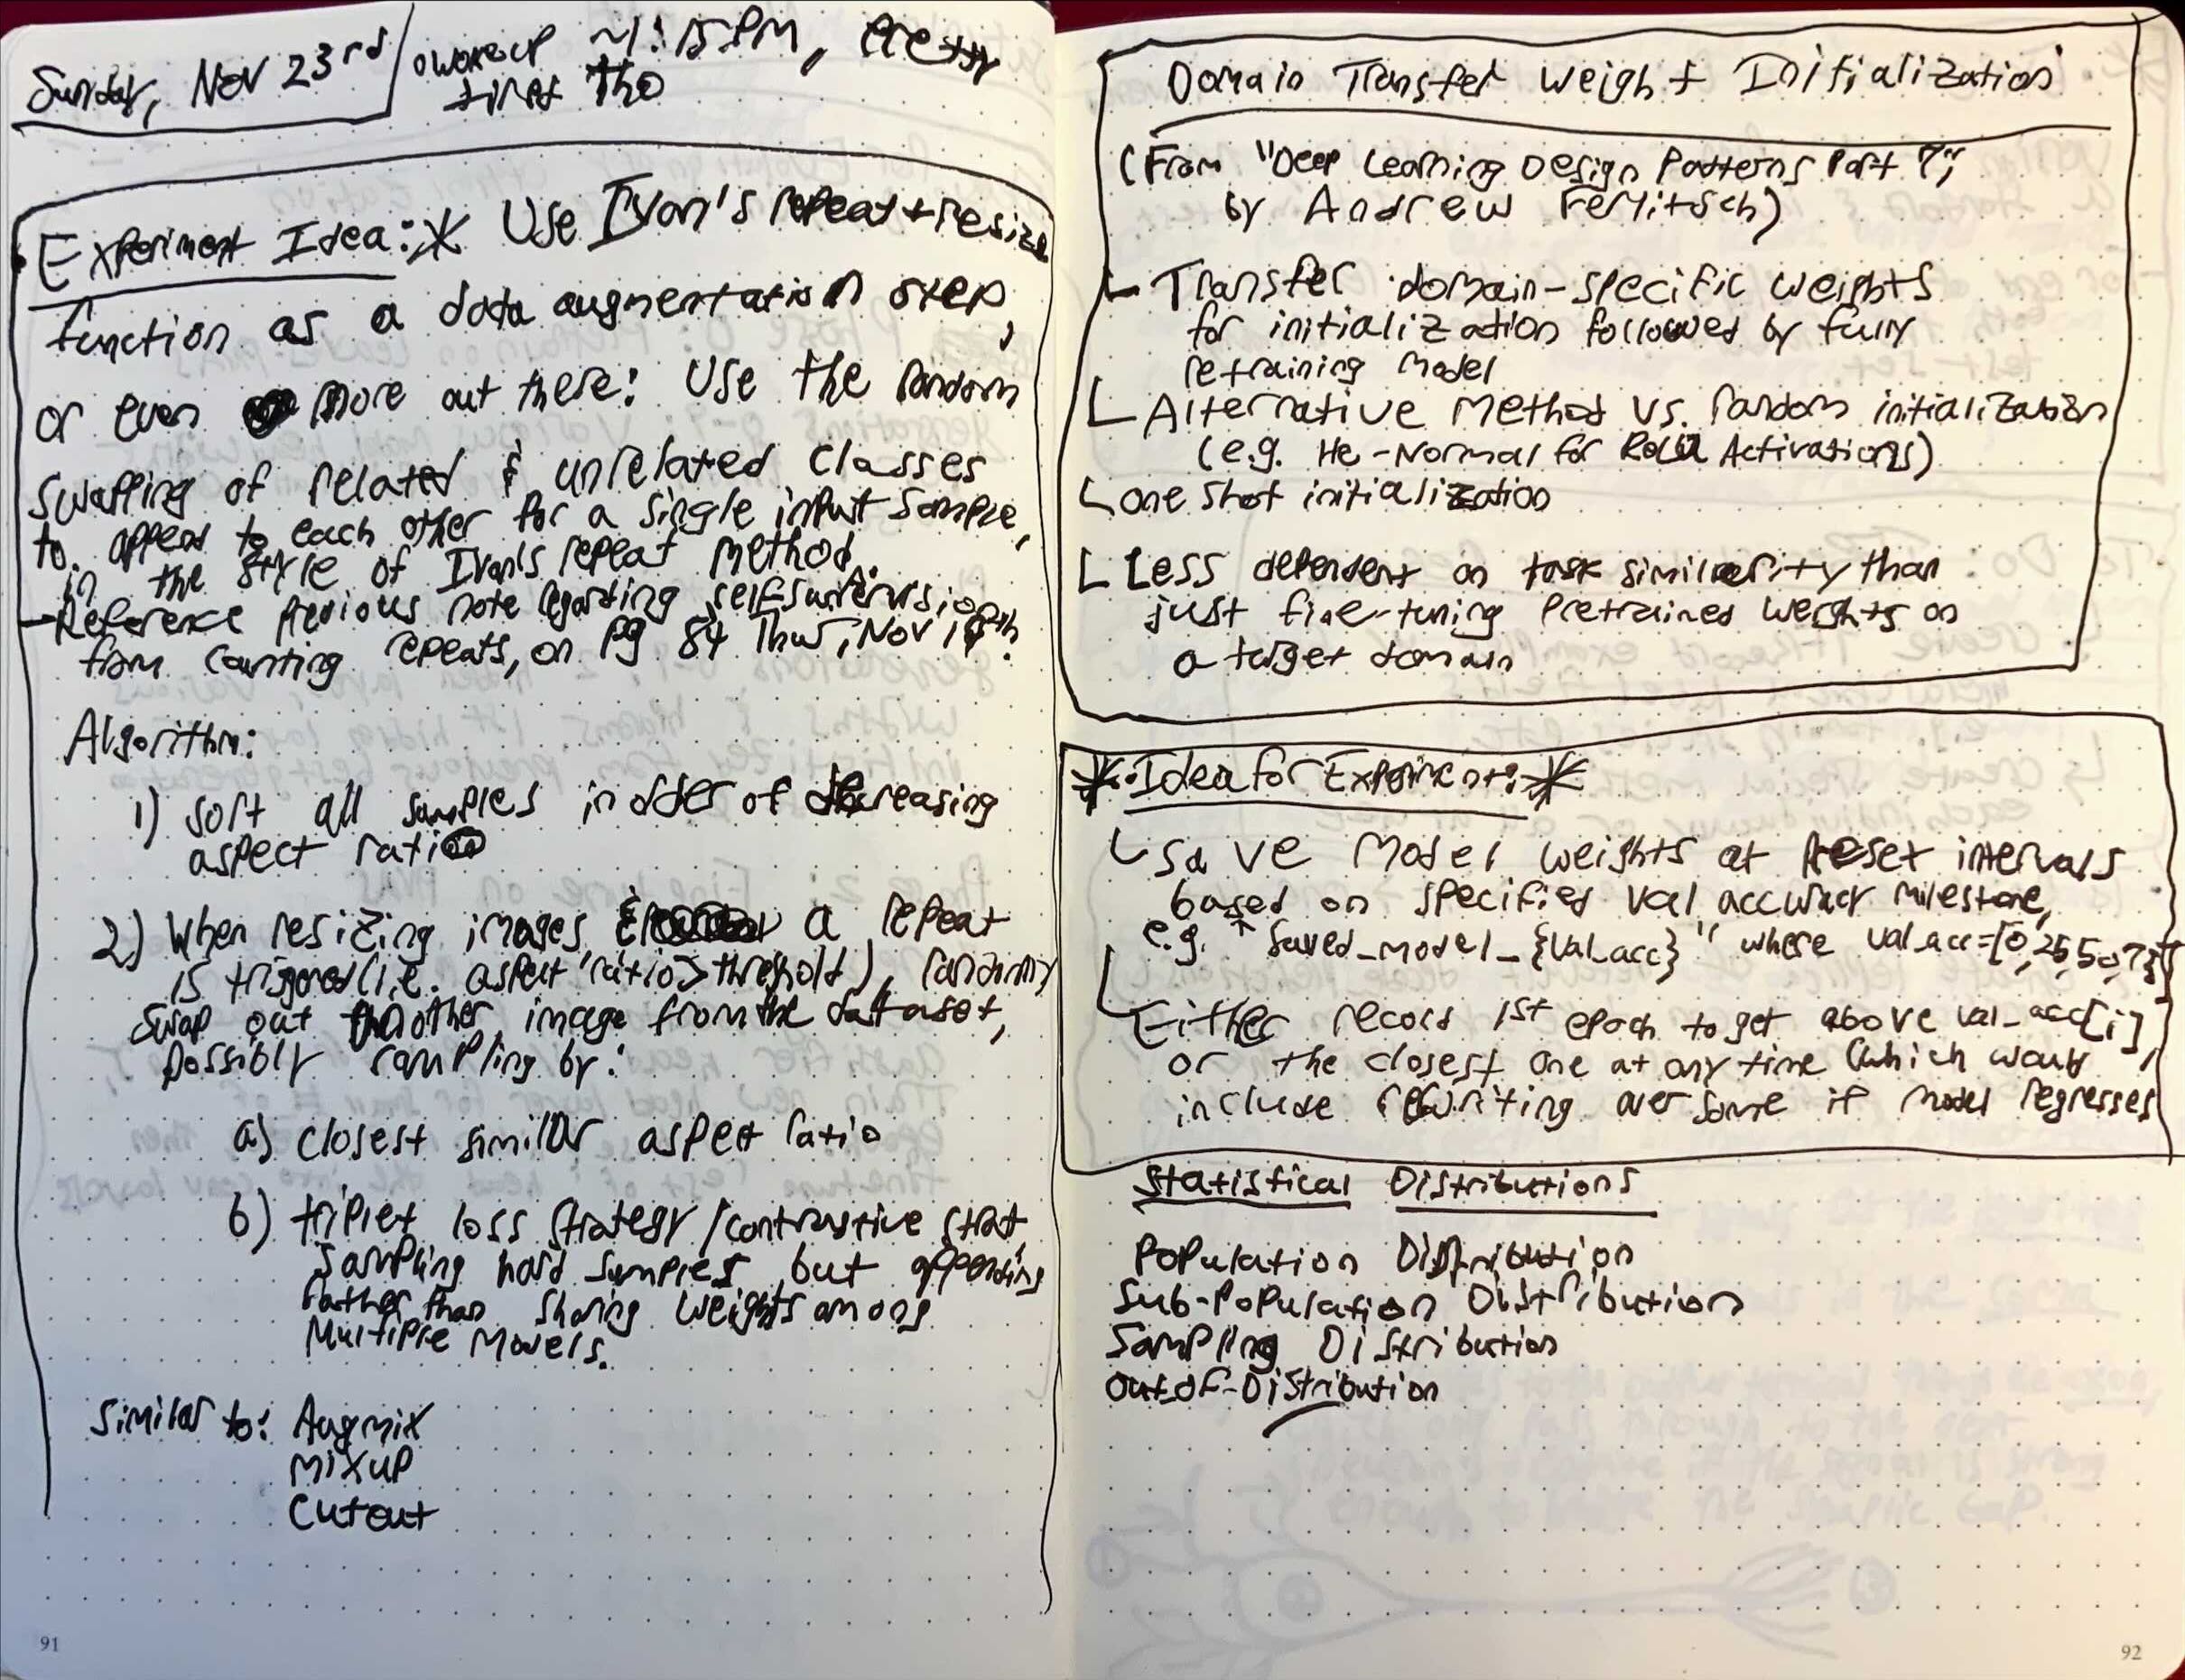 Sunday, Nov 23rd / o woke up ~1:15 PM, pretty
tired tho
Experiment Idea:* Use Ivan's repeat+resize
function as a data augmentation step,
or even more out there: Use the random
swapping of related & unrelated classes
to append to each other for a single input sample,
in the style of Ivan's repeat method.
→ Reference previous note regarding self supervision
from counting repeats, on pg 84 Thur, Nov
Algorithm:
1) Sort all samples in order of
aspect ratio
2) When resizing images & a repeat
is triggered (i.e. aspect ratio > threshold), randomly
swap out another image from the dataset,
possibly sampling by:
a) closest similar aspect ratio
b) triplet loss strategy / contrastive strat,
sampling hard samples, but appending
rather than sharing weights among
multiple models.
Similar to: Augmix
mixup
Cutout
91
Domain Transfer Weight Initialization
(From "Deep Learning Design Patterns Part 7",
by Andrew Ferlitsch)
- Transfer domain-specific weights
for initialization followed by fully
retraining model
- Alternative method vs. random initialization
(e.g. He-Normal for ReLU Activations)
- one shot initialization
- Less dependent on task similarity than
just fine-tuning pretrained weights on
a target domain
* Idea for Experiment: *
- Save model weights at preset intervals
based on specified val accuracy milestone,
e.g. "saved_model_{val_acc}" where val_acc=[0,25,50,75]
- Either record 1st epoch to get above val_acc[i],
or the closest one at any time (which would
include rewriting over some if model regresses
Statistical Distributions
Population Distribution
Sub-Population Distribution
Sampling Distribution
Out-of-Distribution
92